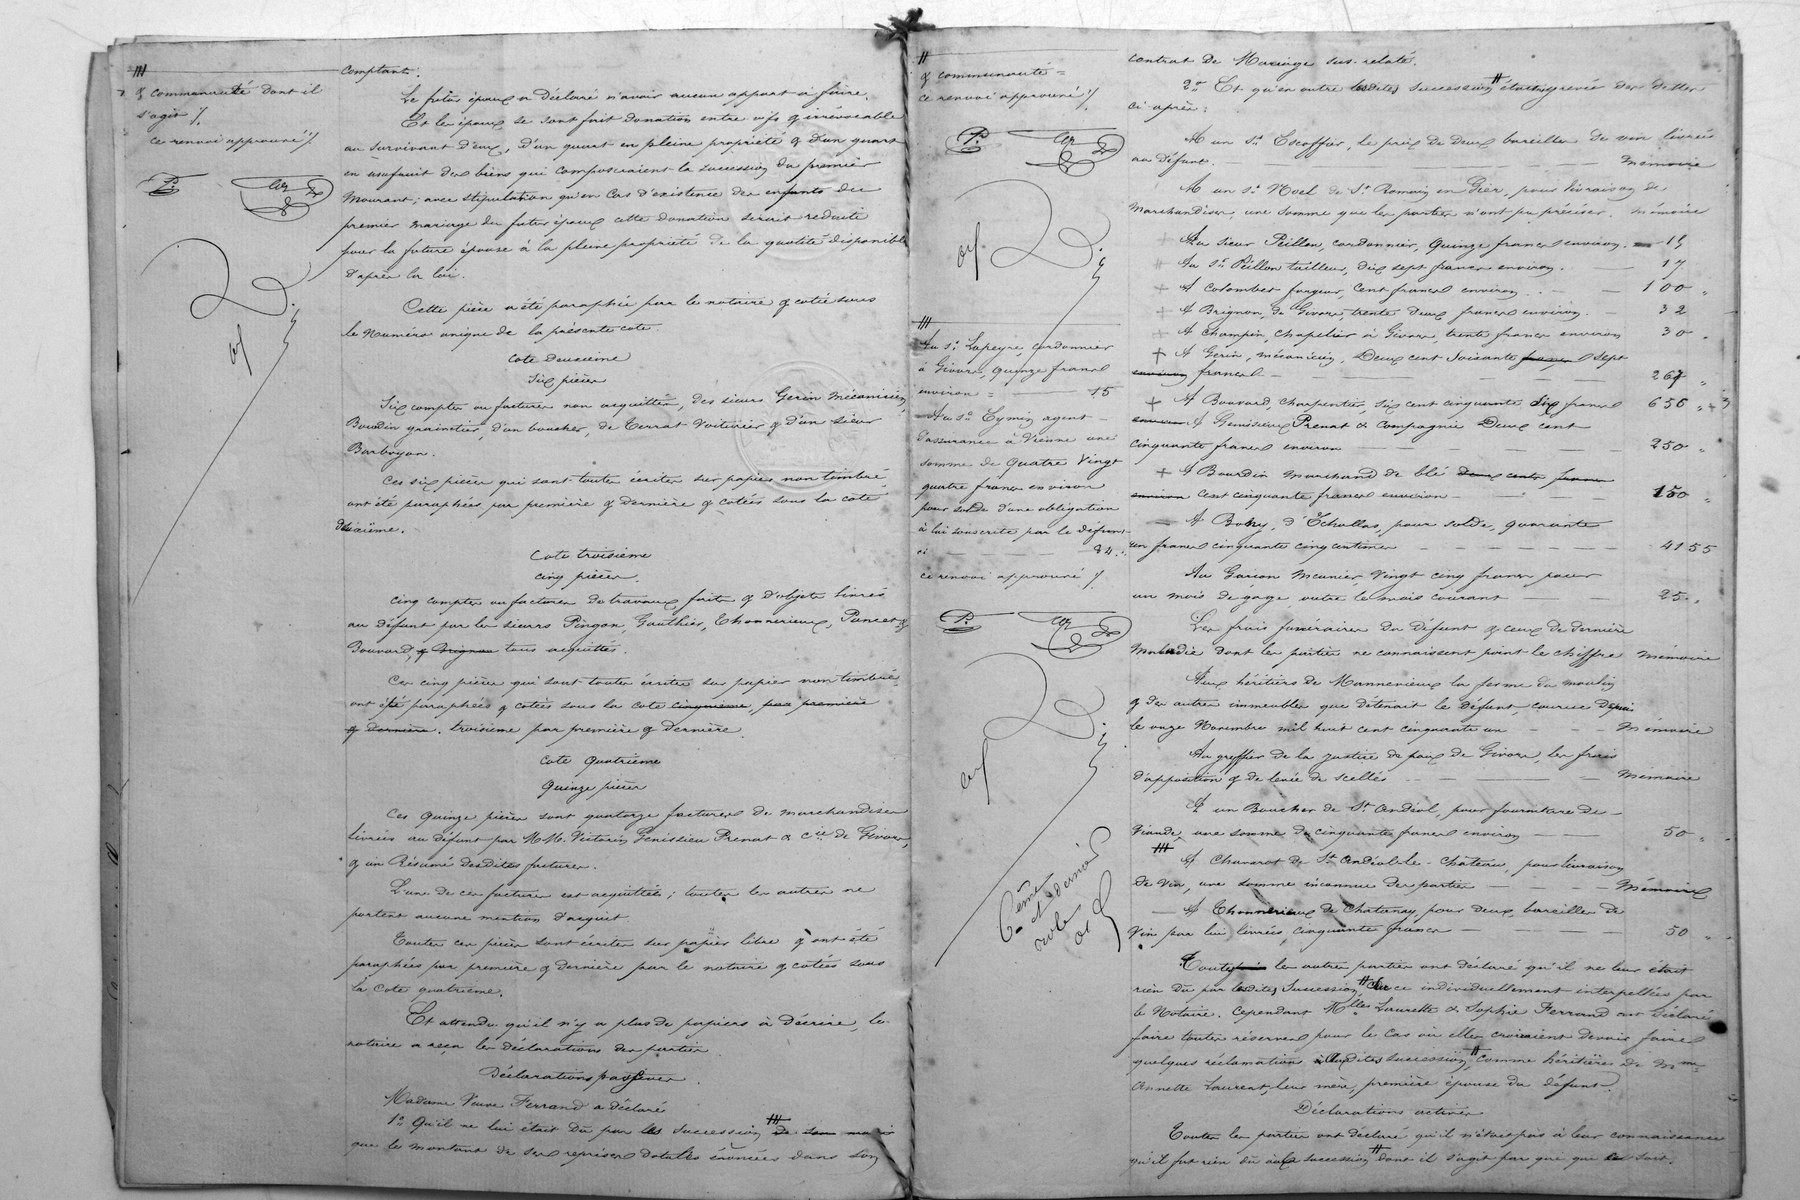 comptant.
Le futur époux a déclaré n'avoir aucun apport à faire.
Et les époux se sont fait donation entre vifs & irrévocable
au survivant d'eux, d'un quart en pleine propriété & d'un quart
en usufruit des biens qui composeraient la succession du premier
mourant; avec stipulation qu'en cas d'existence des enfants du
premier mariage du futur époux cette donation serait réduite
pour la future épouse à la pleine propriété de la quotité disponible
d'après la loi.
Cette pièce a été paraphée par le notaire & cotée sous
le Numéro unique de la présente cote.
Cote Deuxième
Six pièces
Six comptes ou factures non acquittés, des sieurs Gerin mécanicien,
Bourdin grainetier, d'un boucher, de Terrat voiturier & d'un sieur
Barboyon.
Ces six pièces qui sont toutes écrites sur papier non timbré
ont été paraphées par première & dernière & cotées sous la cote
deuxième.
Cote troisième
Cinq pièces.
Cinq comptes ou factures de travaux faits & d'objets livrés
au défunt par les sieurs Pingon, Gauthier, Thonnerieux, Poncet &
Bouvard, & Brignon tous acquittés.
Ces cinq pièces qui sont toutes écrites sur papier non timbré
ont été paraphées & cotées sous la cote cinquième, par première
& dernière. troisième par première & dernière.
Cote Quatrième
Quinze pièces
Ces Quinze pièces sont quatorze factures de marchandises
livrées au défunt par M.M. Victorin Génissieu Prenat & Cie de Givors,
& un Résumé desdites factures.
L'une de ces factures est acquittée; toutes les autres ne
portent aucune mention d'acquit.
Toutes ces pièces sont écrites sur papier libre & ont été
paraphées par première & dernière par le notaire & cotées sous
la cote quatrième.
Et attendu qu'il n'y a plus de papiers à décrire, le
notaire a reçu les déclarations des parties.
Déclarations passives.
Madame Veuve Ferrand a déclaré
1° Qu'il ne lui était dû par les succession de son mari
que le montant de ses reprises dotales énoncées dans son
& communauté dont il
s'agit /.
ce renvoi approuvé /.
contrat de Mariage sus-relaté.
2° Et qu'en outre lesdites succession étaient grevées des dettes
ci-après:
A un Sr Escoffier, le prix de deux bareilles de vin livrées
au défunt. Mémoire
A un Sr Noel de St Romain en Gier, pour livraison de
marchandises, une somme que les parties n'ont pu préciser. Mémoire
Au sieur Peillon, cordonnier, Quinze francs environ. 15
Au Sr Peillon tailleur, dix sept francs environ. 17
A Colombet forgeur, cent francs environ. 100 "
A Brignon, de Givors, trente deux francs environ. 32
A Champin, chapelier à Givors, trente francs environ 30
A Gerin, mécanicien, Deux cent soixante francs sept
environ francs 267 "
A Bouvard, charpentier, six cent cinquante six francs 656 "
environ A Genissieux Prenat & Compagnie Deux cent
cinquante francs environ 250 "
A Bourdin marchand de blé deux cents francs
environ cent cinquante francs environ 150 "
A Bony, d'Echallas, pour solde, quarante
un francs cinquante cinq centimes 41 55
Au Garçon meunier vingt cinq francs pour
un mois de gage, outre le mois courant 25 "
Les frais funéraires du défunt & ceux de dernière
maladie dont les parties ne connaissent point le chiffre Mémoire
Aux héritiers de Mannevieux la ferme du moulin
& des autres immeubles que détenait le défunt, courue depuis
le onze Novembre mil huit cent cinquante un Mémoire
Au greffier de la justice de paix de Givors, les frais
d'apposition & de levée de scellés Mémoire
A un Boucher de St Andéol, pour fourniture de
viande, une somme de cinquante francs environ 50 "
A Chavarot de St Andéol-le-Château, pour livraison
de vin, une somme inconnue des parties Mémoire
A Thonnerieux de Chatanay, pour deux bareilles de
Vin par lui livrées, cinquante francs 50 "
Toutes les autres parties ont déclaré qu'il ne leur était
rien dû par lesdites succession sur ce individuellement interpellées par
le Notaire. Cependant Mlles Laurette & Sophie Ferrand ont déclaré
faire toutes réserves pour le cas où elles croiraient devoir faire
quelques réclamations auxdites succession, comme héritières de Mme
Annette Laurent, leur mère, première épouse du défunt.
Déclarations actives
Toutes les parties ont déclaré qu'il n'était pas à leur connaissance
qu'il fut rien dû aux succession dont il s'agit par qui que ce soit.
& communauté =
ce renvoi approuvé /.
Au Sr Lapeyre, cordonnier
à Givors, Quinze francs
environ = 15
Au Sr Eymin agent
d'assurance à Vienne une
somme de Quatre Vingt
quatre francs environ
pour solde d'une obligation
à lui souscrite par le défunt
ci 84 "
ce renvoi approuvé /.
6ème
et dernier
rôle